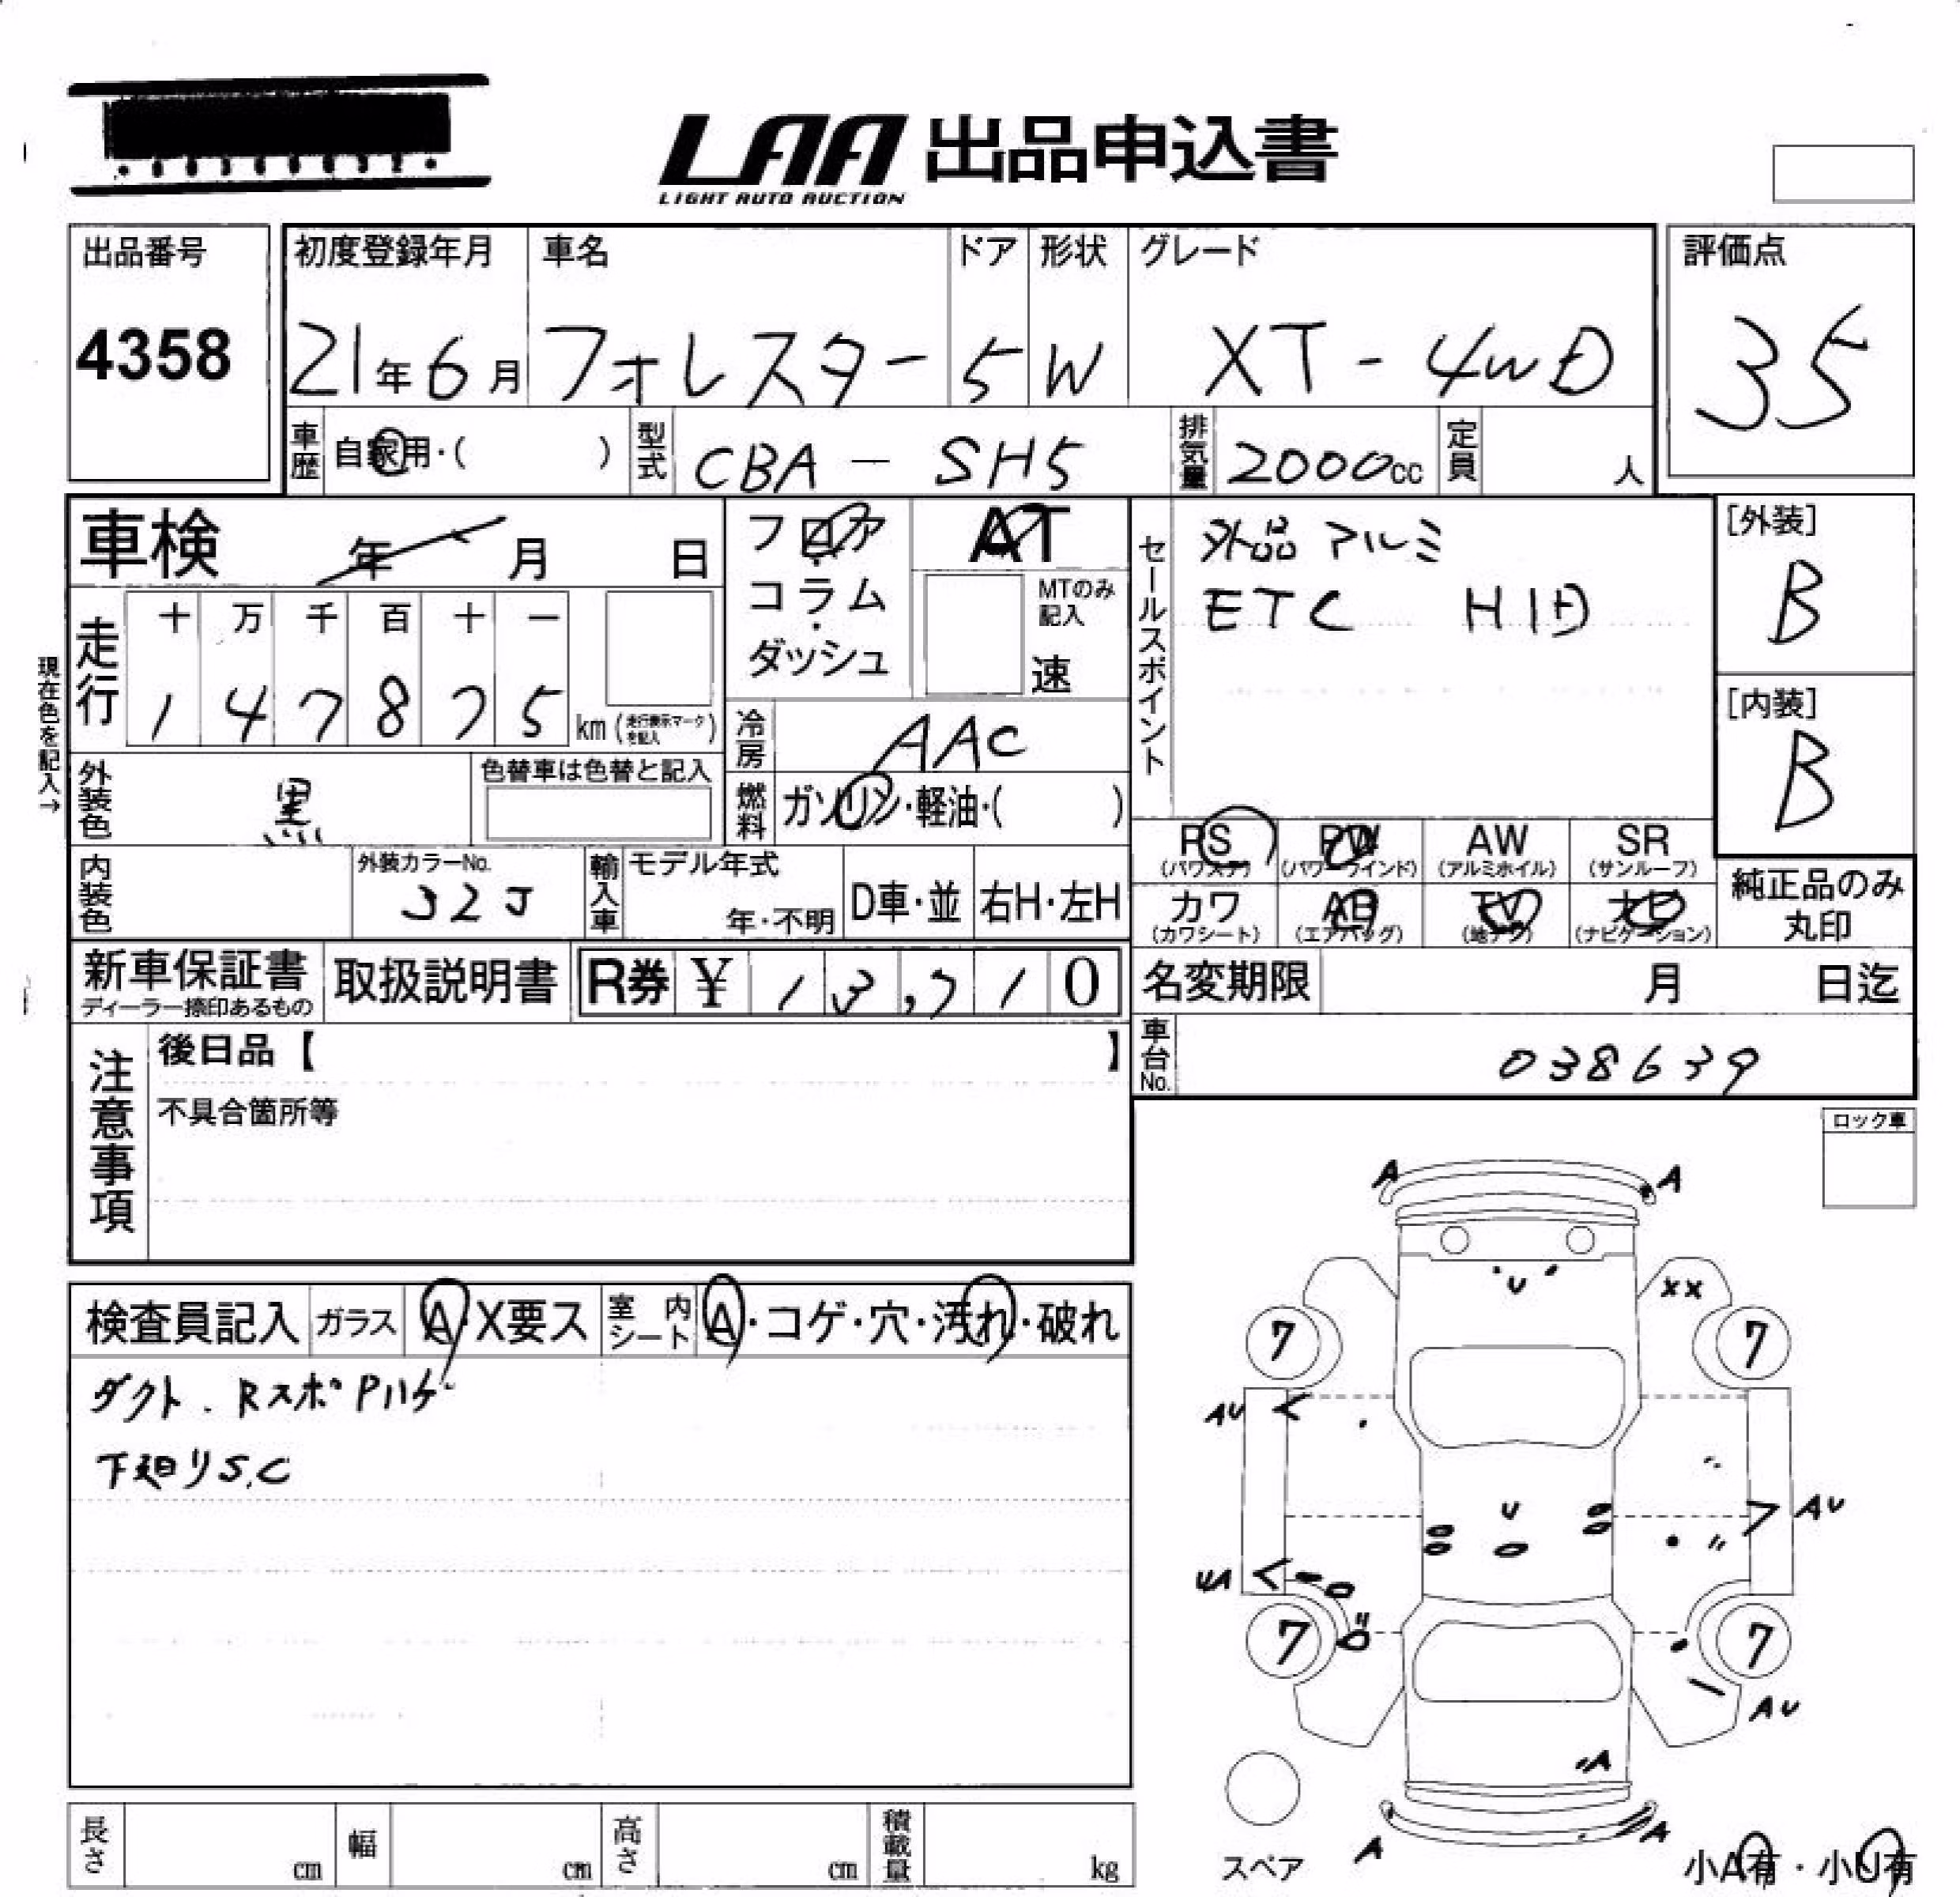 LAA 出品申込書
LIGHT AUTO AUCTION
出品番号 初度登録年月 車名 ドア 形状 グレード 評価点
4358 21年6月 フォレスター 5 W XT-4WD 35
車歴 自家用・( ) 型式 CBA-SH5 排気量 2000cc 定員 人
車検 年 月 日 フロア・コラム・ダッシュ AT
MTのみ記入 速
セールスポイント
外品 アルミ
ETC HID
[外装] B
[内装] B
現在色を記入→
走行 十 万 千 百 十 一
1 4 7 8 7 5 km (走行表示マークを記入)
冷房 AAC
外装色 黒 色替車は色替と記入
燃料 ガソリン・軽油・( )
PS (パワステ) PW (パワーウインド) AW (アルミホイル) SR (サンルーフ)
カワ (カワシート) AB (エアバッグ) TV (地デジ) ナビ (ナビゲーション)
純正品のみ丸印
内装色 外装カラーNo. 32J 輸入車 モデル年式 年・不明 D車・並 右H・左H
新車保証書 ディーラー捺印あるもの 取扱説明書 R券 ¥ 13,710
名変期限 月 日迄
車台No. 038639
注意事項
後日品【 】
不具合箇所等
ロック車
検査員記入 ガラス A・X要ス 室内シート A・コゲ・穴・汚れ・破れ
ダクト.RスポPハゲ
下廻りS.C
A A
U
XX
7 7
AU
U AU
7 7
AU
A
A A
スペア
小A有・小U有
長さ cm 幅 cm 高さ cm 積載量 kg